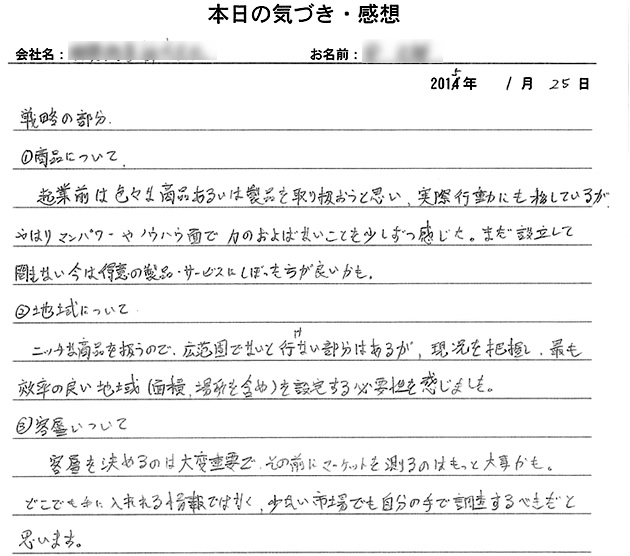 本日の気づき・感想
会社名： お名前：
2015年 1月 25日
戦略の部分.
①商品について.
起業前は色々な商品あるいは製品を取り扱おうと思い、実際行動にも移しているが
やはりマンパワーやノウハウ面で力のおよばないことを少しずつ感じた。まだ設立して
間もない今は得意の製品・サービスにしぼった方が良いかも。
②地域について
ニッチな商品を扱うので、広範囲でないと行けない部分はあるが、現況を把握し、最も
効率の良い地域(面積、場所を含め)を設定する必要性を感じました。
③客層について
客層を決めるのは大変重要で、その前にマーケットを測るのはもっと大事かも。
どこでも手に入れれる情報ではなく、少ない市場でも自分の手で調査するべきだと
思います。